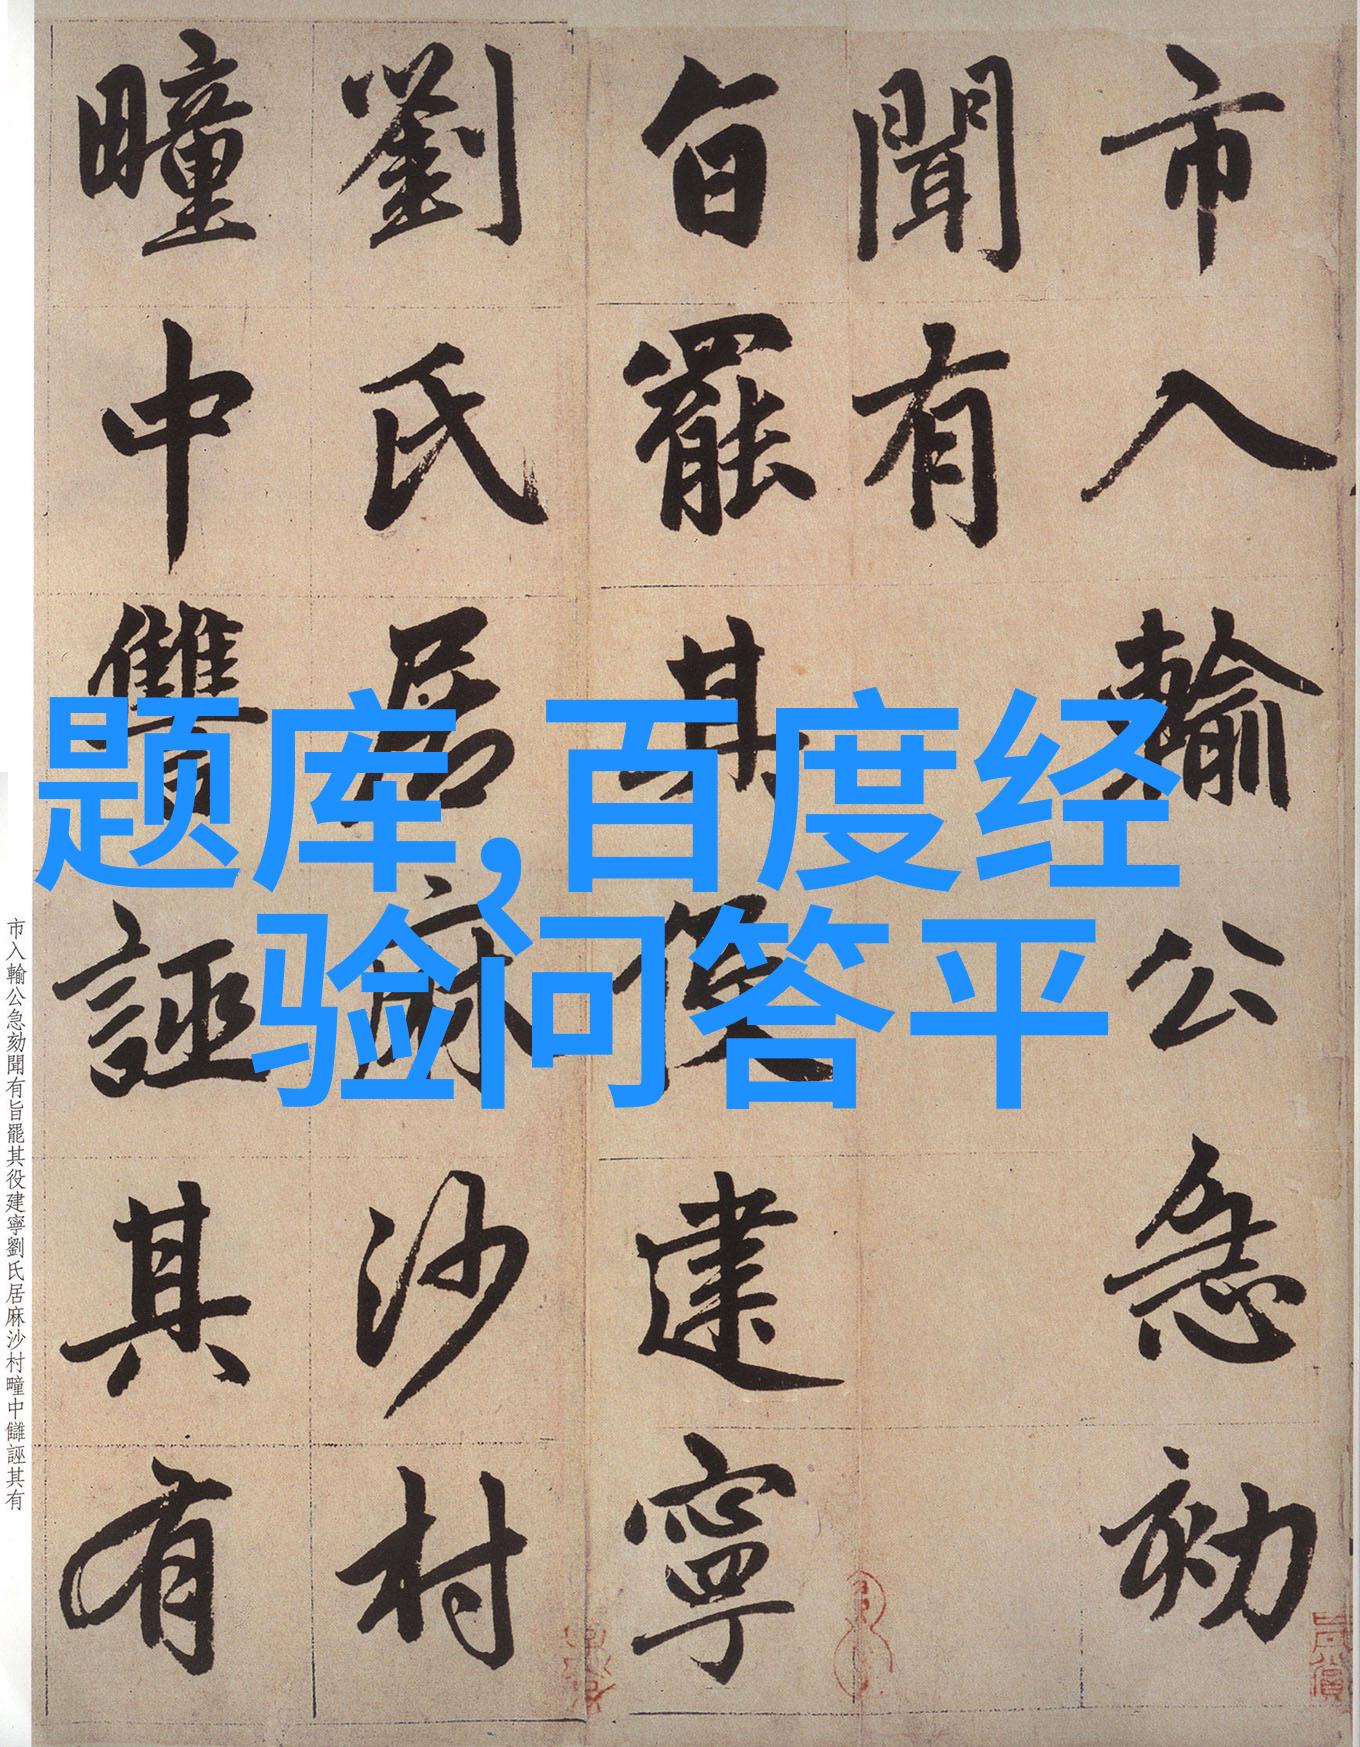 市入輸公急劾
聞有
旨罷其役建寧
劉氏居麻沙村
疃中讎誣其有
题库,百度经
验问答平
市入輸公急劾聞有旨罷其役建寧劉氏居麻沙村疃中讎誣其有